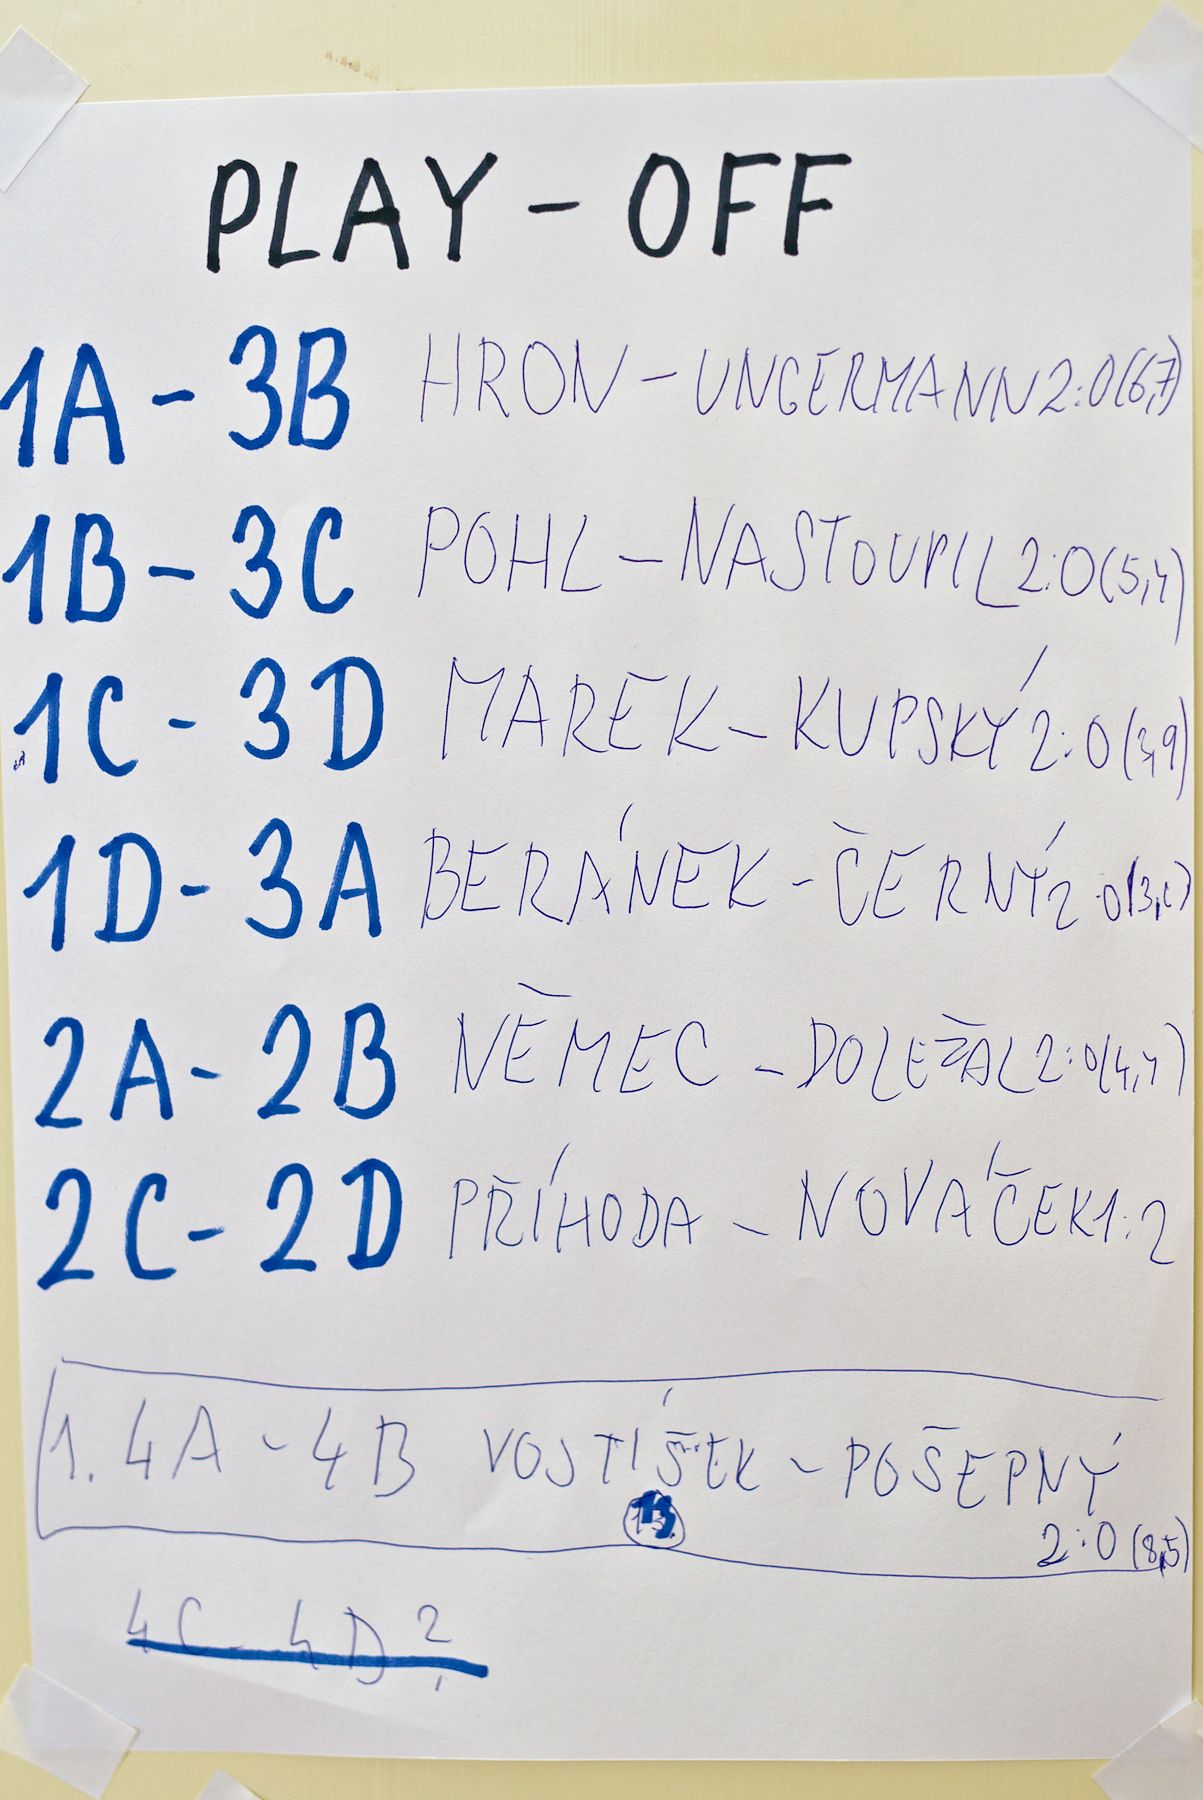 PLAY - OFF
1A - 3B HRON - UNGERMANN 2:0 (6,7)
1B - 3C POHL - NASTOUPIL 2:0 (5,4)
1C - 3D MAREK - KUPSKÝ 2:0 (3,9)
1D - 3A BERÁNEK - ČERNÝ 2:0
2A - 2B NĚMEC - DOLEŽAL 2:0 (4,4)
2C - 2D PŘÍHODA - NOVÁČEK 1:2
1. 4A - 4B VOSTÍŠEK - POŠEPNÝ
13.
2:0 (8,5)
4C - 4D ?